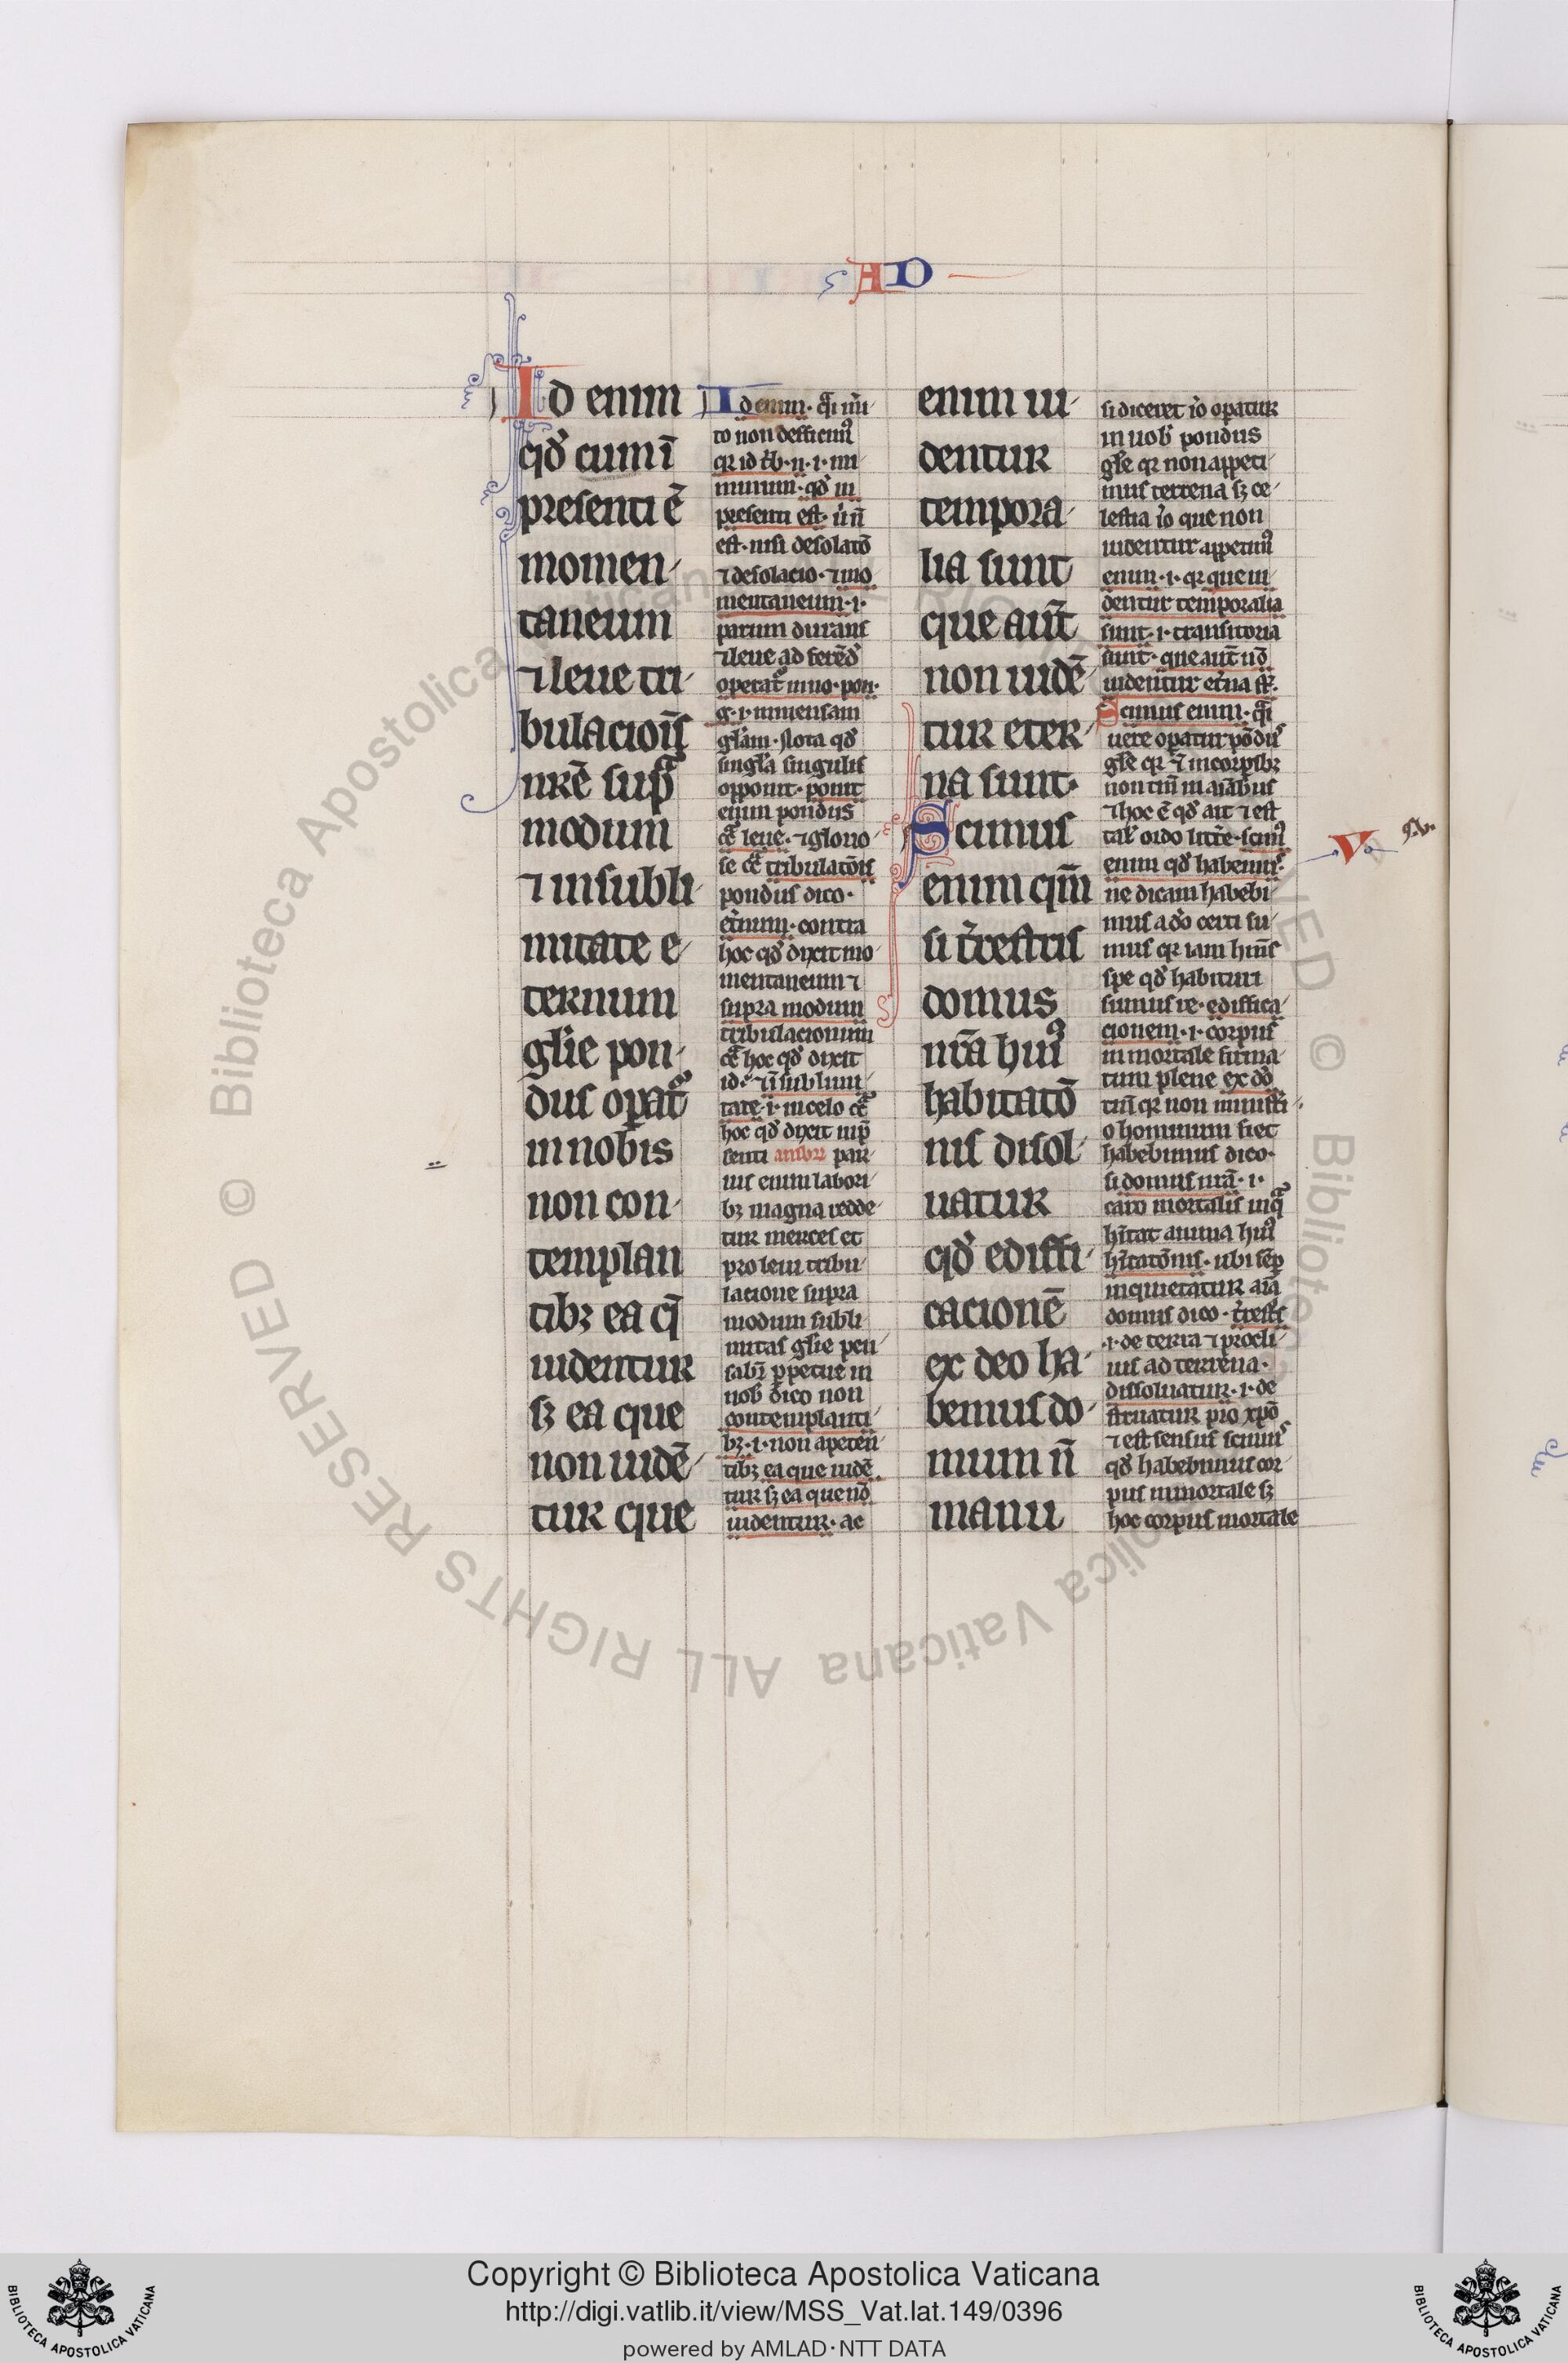 AD
Id enim
qd̾ cum ī
presenti ē
momen-
taneum
⁊ leue tri-
bulacioīs
nrē sup̄
modum
⁊ in subli-
mitate e-
ternum
gl̄ie pon-
dus opat᷑
in nobis
non con-
templan
tibꝫ ea q̄
uidentur
sꝫ ea que
non uidē-
tur que
Id enim. q̄i m̄i-
to non defficimꝰ
qꝛ id
mnium. qd̾ in
presenti est.
est. nisi desolatō
⁊ desolacio. ⁊ mo
mentaneum .i.
parum durans
⁊ leue ad ferēd̾
operat᷑ in no. pon.
g. i. inmensam
gl̄am. Nota qd̾
singl̄a singulis
opponit. ponit
enim pondus
leue. ⁊ glorio-
se tribulatōis
pondus dico.
et̄num. contra
hoc qd̾ dixit mo-
mentaneum ⁊
supra modum
tribulacionum
hoc qd̾ dixit
⁊ ī sublimi-
tate .i. in celo
hoc qd̾ dixit in p̄
senti par-
uis enim labori-
bꝫ magna redde-
tur merces et
pro leui tribu-
lacione supra
modum subli-
mitas gl̄ie pen-
sab᷑ ꝑpetue in
nob̾ dico non
contemplanti-
bꝫ .i. non apeten-
tibꝫ ea que uidē-
tur sꝫ ea que nō
uidentur. ac
enim ui-
dentur
tempora-
lia sunt
que aut̄
non uidē-
tur eter-
na sunt.
Scimus
enim qm̄
si t̄restris
domus
nr̄a huiꝰ
habitatō
nis disol-
uatur
qd̾ ediffi-
cacionē
ex deo ha-
bemus do-
mum n̄
manu
si diceret io opatur
in uob̾ pondus
gl̄e qꝛ non appeti-
mus terrena sꝫ ce-
lestia io que non
uidentur appetimꝰ
enim .i. qꝛ que ui-
dentur temporalia
sunt .i. transitoria
sunt. que aut̄ nō
uidentur et̄na st̄.
Scimus enim. q̄i
uere opatur pōdus
gl̄e qꝛ ⁊ in corpibꝫ
non tm̄ in aīabus
⁊ hoc ē qd̾ ait ⁊ est
tal̾ ordo litt̄e. scimꝰ
enim qd̾ habemus.
ne dicam habebi-
mus ado certi su-
mus qꝛ iam him̄s
spe qd̾ habituri
sumus re. ediffica-
cionem .i. corpus
inmortale firma-
tum plene ex dō
tm̄ qꝛ non ministri-
o hominum fiet
habebimus dico.
si domus nr̄a .i.
caro mortalis in q̄
hītat anima huiꝰ
hītatōnis. ubi sēp
inquietatur aīa
domus dico. t̄rest̾s
.i. de terra ⁊ procli-
uis ad terrena.
dissoluatur .i. de
struatur pro xp̄o
⁊ est sensus scimꝰ
qd̾ habebimus cor-
pus inmortale sꝫ
hoc corpus mortale
V
c.v.
Copyright © Biblioteca Apostolica Vaticana
http://digi.vatlib.it/view/MSS_Vat.lat.149/0396
powered by AMLAD · NTT DATA
BIBLIOTECA APOSTOLICA VATICANA
BIBLIOTECA APOSTOLICA VATICANA
© Biblioteca Apostolica Vaticana ALL RIGHTS RESERVED